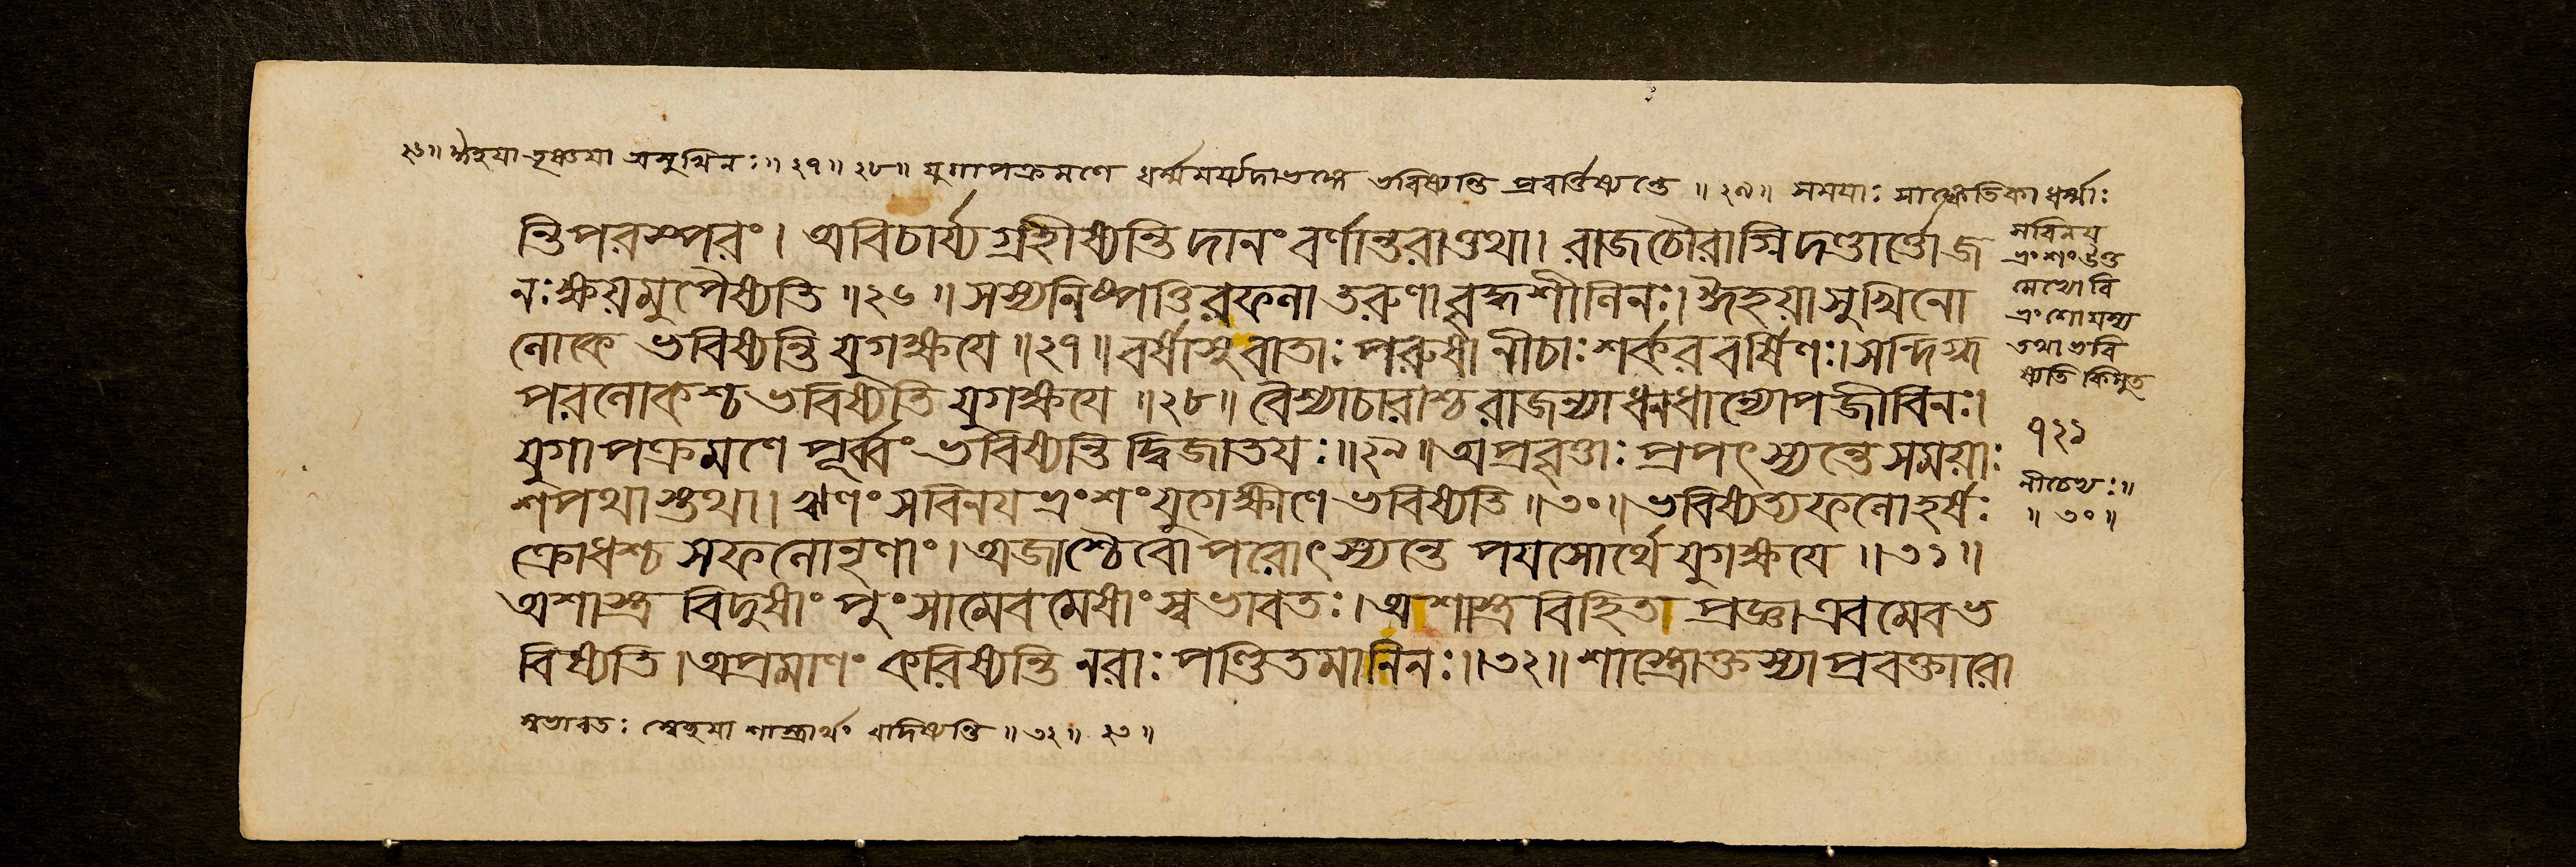 ২৬॥ ঈহয়া তৃষ্ণয়া অসুখিনঃ॥ ২৭॥ ২৮॥ যুগাপক্রমণে ধর্ম্মমর্য্যাদাভঙ্গে ভবিষ্যন্তি প্রবর্ত্তিষ্যন্তে ॥ ২৯॥ সময়াঃ সাঙ্কেতিকা ধর্ম্মাঃ
ন্তি পরস্পরং। অবিচার্য্য গ্রহীষ্যন্তি দানং বর্ণান্তরাত্তথা। রাজচৌরাগ্নিদণ্ডার্ত্তো জ
নঃ ক্ষয়মুপৈষ্যতি ॥২৬॥ সস্যনিষ্পত্তিরফলা তরুণা বৃদ্ধশীলিনঃ। ঈহয়াসুখিনো
লোকে ভবিষ্যন্তি যুগক্ষয়ে ॥২৭॥ বর্ষাসু বাতাঃ পরুষা নীচাঃ শর্করবর্ষিণঃ। সন্দিগ্ধ
পরলোকশ্চ ভবিষ্যতি যুগক্ষয়ে ॥২৮॥ বৈশ্যাচারাশ্চ রাজন্যা ধনধান্যোপজীবিনঃ।
যুগাপক্রমণে পূর্ব্বং ভবিষ্যন্তি দ্বিজাতয়ঃ॥২৯॥ অপ্রবৃত্তাঃ প্রপৎস্যন্তে সময়াঃ
শপথাস্তথা। ঋণং সবিনয়ভ্রংশং যুগে ক্ষীণে ভবিষ্যতি ॥৩০॥ ভবিষ্যত্যফলো হর্ষঃ
ক্রোধশ্চ সফলো নৃণাং। অজাশ্চৈবোপরোৎস্যন্তে পয়সোর্থে যুগক্ষয়ে ॥৩১॥
অশাস্ত্রবিদুষাং পুংসামেবমেষাং স্বভাবতঃ। অশাস্ত্রবিহিতা প্রজ্ঞা এবমেব ভ
বিষ্যতি। অপ্রমাণং করিষ্যন্তি নরাঃ পণ্ডিতমানিনঃ॥৩২॥ শাস্ত্রোক্তস্যাপ্রবক্তারো
স্বভাবতঃ স্বেচ্ছয়া শাস্ত্রার্থং বদিষ্যন্তি ॥ ৩২॥ ২৩॥
সবিনয়
ভ্রংশং
বি
ভ্রংশো যস্য
তথা ভবি
ষ্যতি কিমুত
৭২১
॥ ৩০ ॥